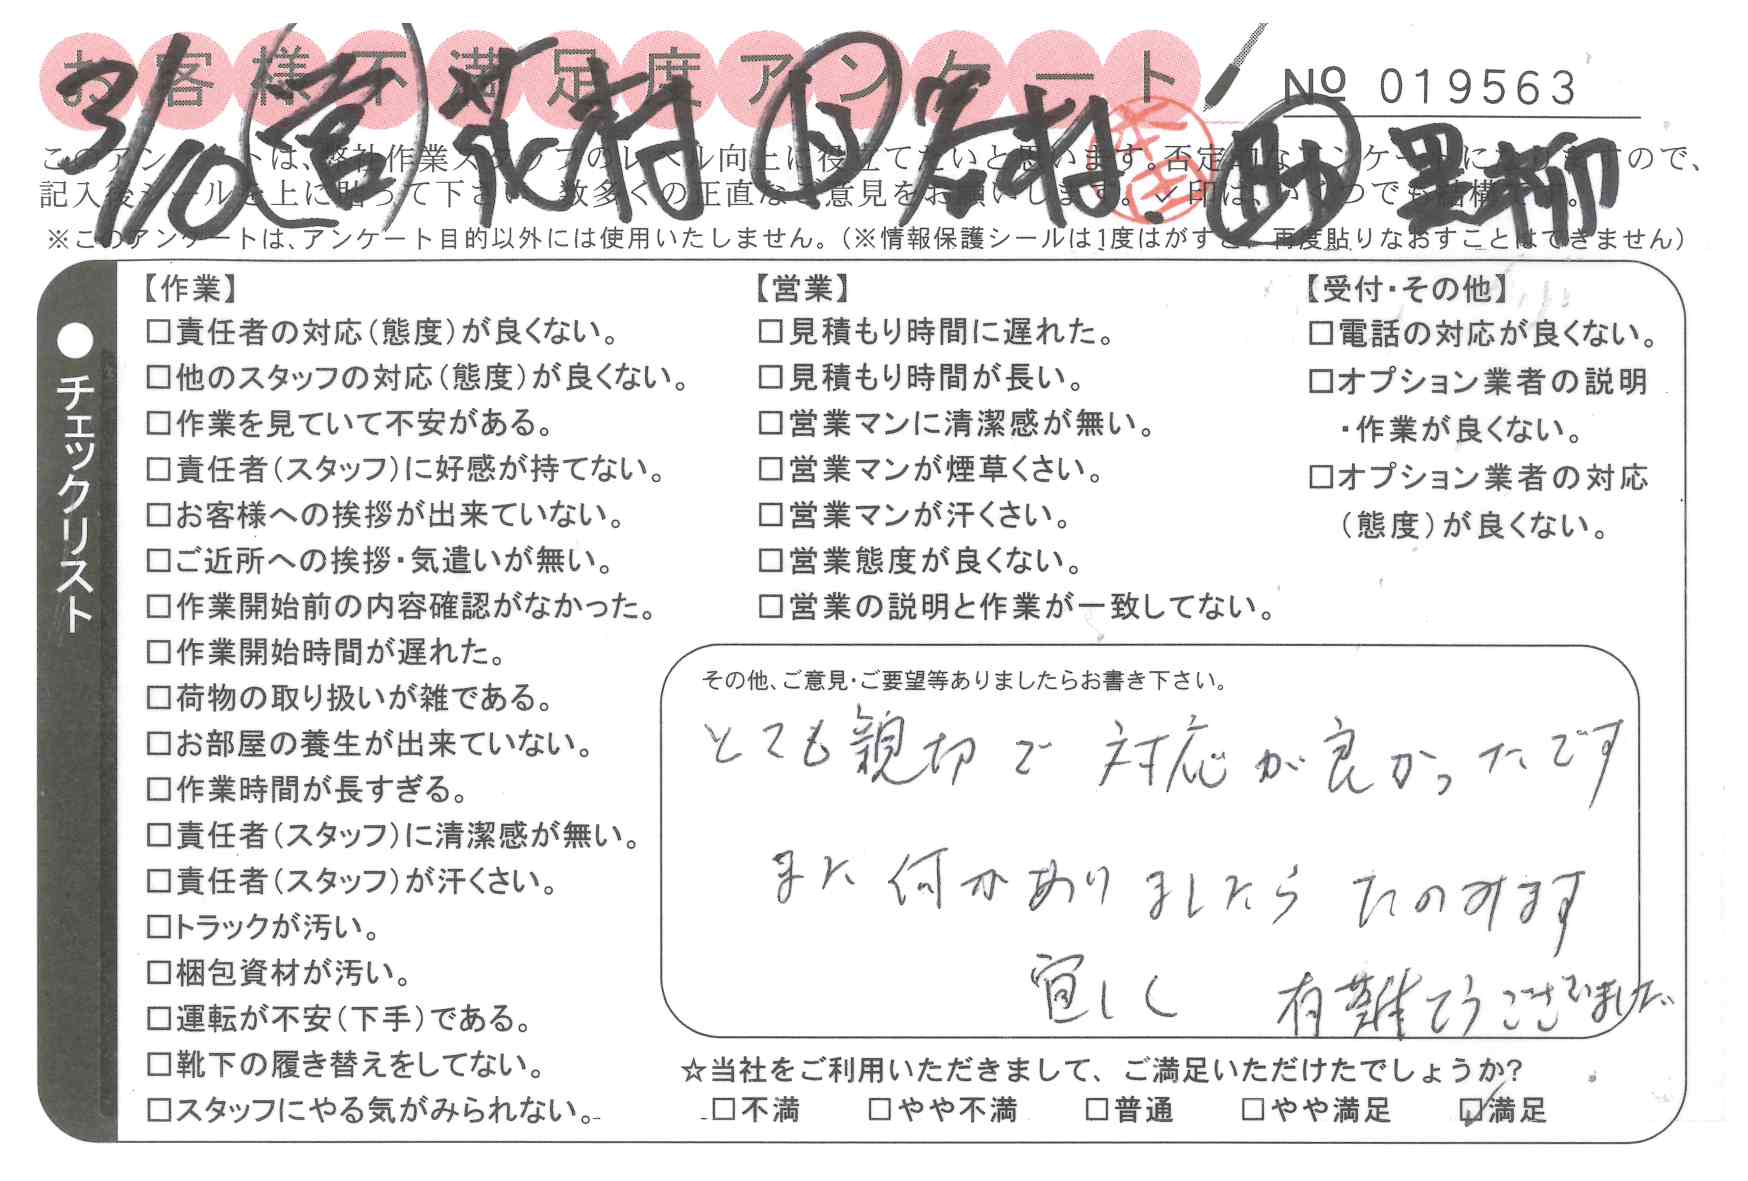 お客様不満足度アンケート
№ 019563
3/10 営 花村 岩村 助 黒柳
このアンケートは、弊社作業スタッフのレベル向上に役立てたいと思います。否定的なアンケートになりますので、
記入後シールを上に貼って下さい。数多くの正直なご意見をお願いします。✓印は、いくつでも結構です。
※このアンケートは、アンケート目的以外には使用いたしません。(※情報保護シールは1度はがすと、再度貼りなおすことはできません)
●チェックリスト
【作業】
□責任者の対応(態度)が良くない。
□他のスタッフの対応(態度)が良くない。
□作業を見ていて不安がある。
□責任者(スタッフ)に好感が持てない。
□お客様への挨拶が出来ていない。
□ご近所への挨拶・気遣いが無い。
□作業開始前の内容確認がなかった。
□作業開始時間が遅れた。
□荷物の取り扱いが雑である。
□お部屋の養生が出来ていない。
□作業時間が長すぎる。
□責任者(スタッフ)に清潔感が無い。
□責任者(スタッフ)が汗くさい。
□トラックが汚い。
□梱包資材が汚い。
□運転が不安(下手)である。
□靴下の履き替えをしてない。
□スタッフにやる気がみられない。
【営業】
□見積もり時間に遅れた。
□見積もり時間が長い。
□営業マンに清潔感が無い。
□営業マンが煙草くさい。
□営業マンが汗くさい。
□営業態度が良くない。
□営業の説明と作業が一致してない。
【受付・その他】
□電話の対応が良くない。
□オプション業者の説明
・作業が良くない。
□オプション業者の対応
(態度)が良くない。
その他、ご意見・ご要望等ありましたらお書き下さい。
とても親切で 対応が良かったです
また何かありましたら たのみます
宜しく 有難とうございました
☆当社をご利用いただきまして、ご満足いただけたでしょうか?
□不満 □やや不満 □普通 □やや満足 ☑満足